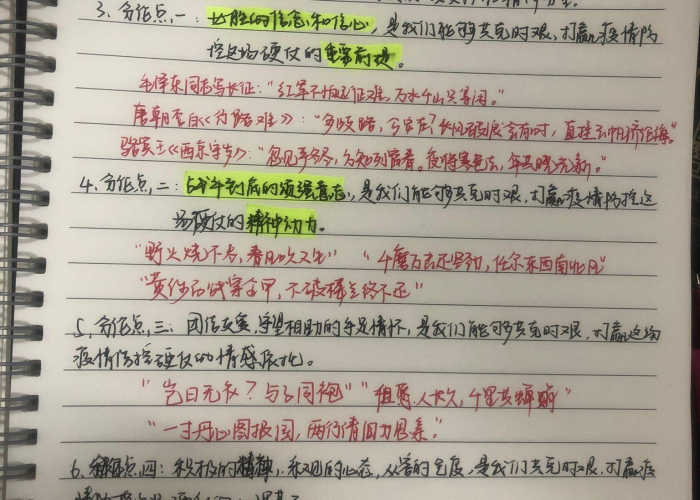 3、分论点,一:必胜的信念和信心,是我们能够共克时艰,打赢疫情防
控这场硬仗的重要前提。
毛泽东同志写长征:"红军不怕远征难,万水千山只等闲。"
唐朝李白《行路难》:"多歧路,今安在?长风破浪会有时,直挂云帆济沧海。"
骆宾王《西京守岁》:"忽见寒梅
4、分论点,二:战斗到底的顽强意志,是我们能够共克时艰,打赢疫情防控这
场硬仗的精神动力。
"野火烧不尽,春风吹又生" "千磨万击还坚劲,任尔东西南北风"
"黄沙百战穿金甲,不破楼兰终不还"
5、分论点,三:团结友爱、守望相助的手足情怀,是我们能够共克时艰,打赢这场
疫情防控硬仗的情感依托。
"岂曰无衣?与子同袍" "但愿人长久,千里共婵娟"
"一寸丹心图报国,两行清泪为思亲。"
6、分论点,四:积极的精神、乐观的心态,是我们共克时艰,打赢疫